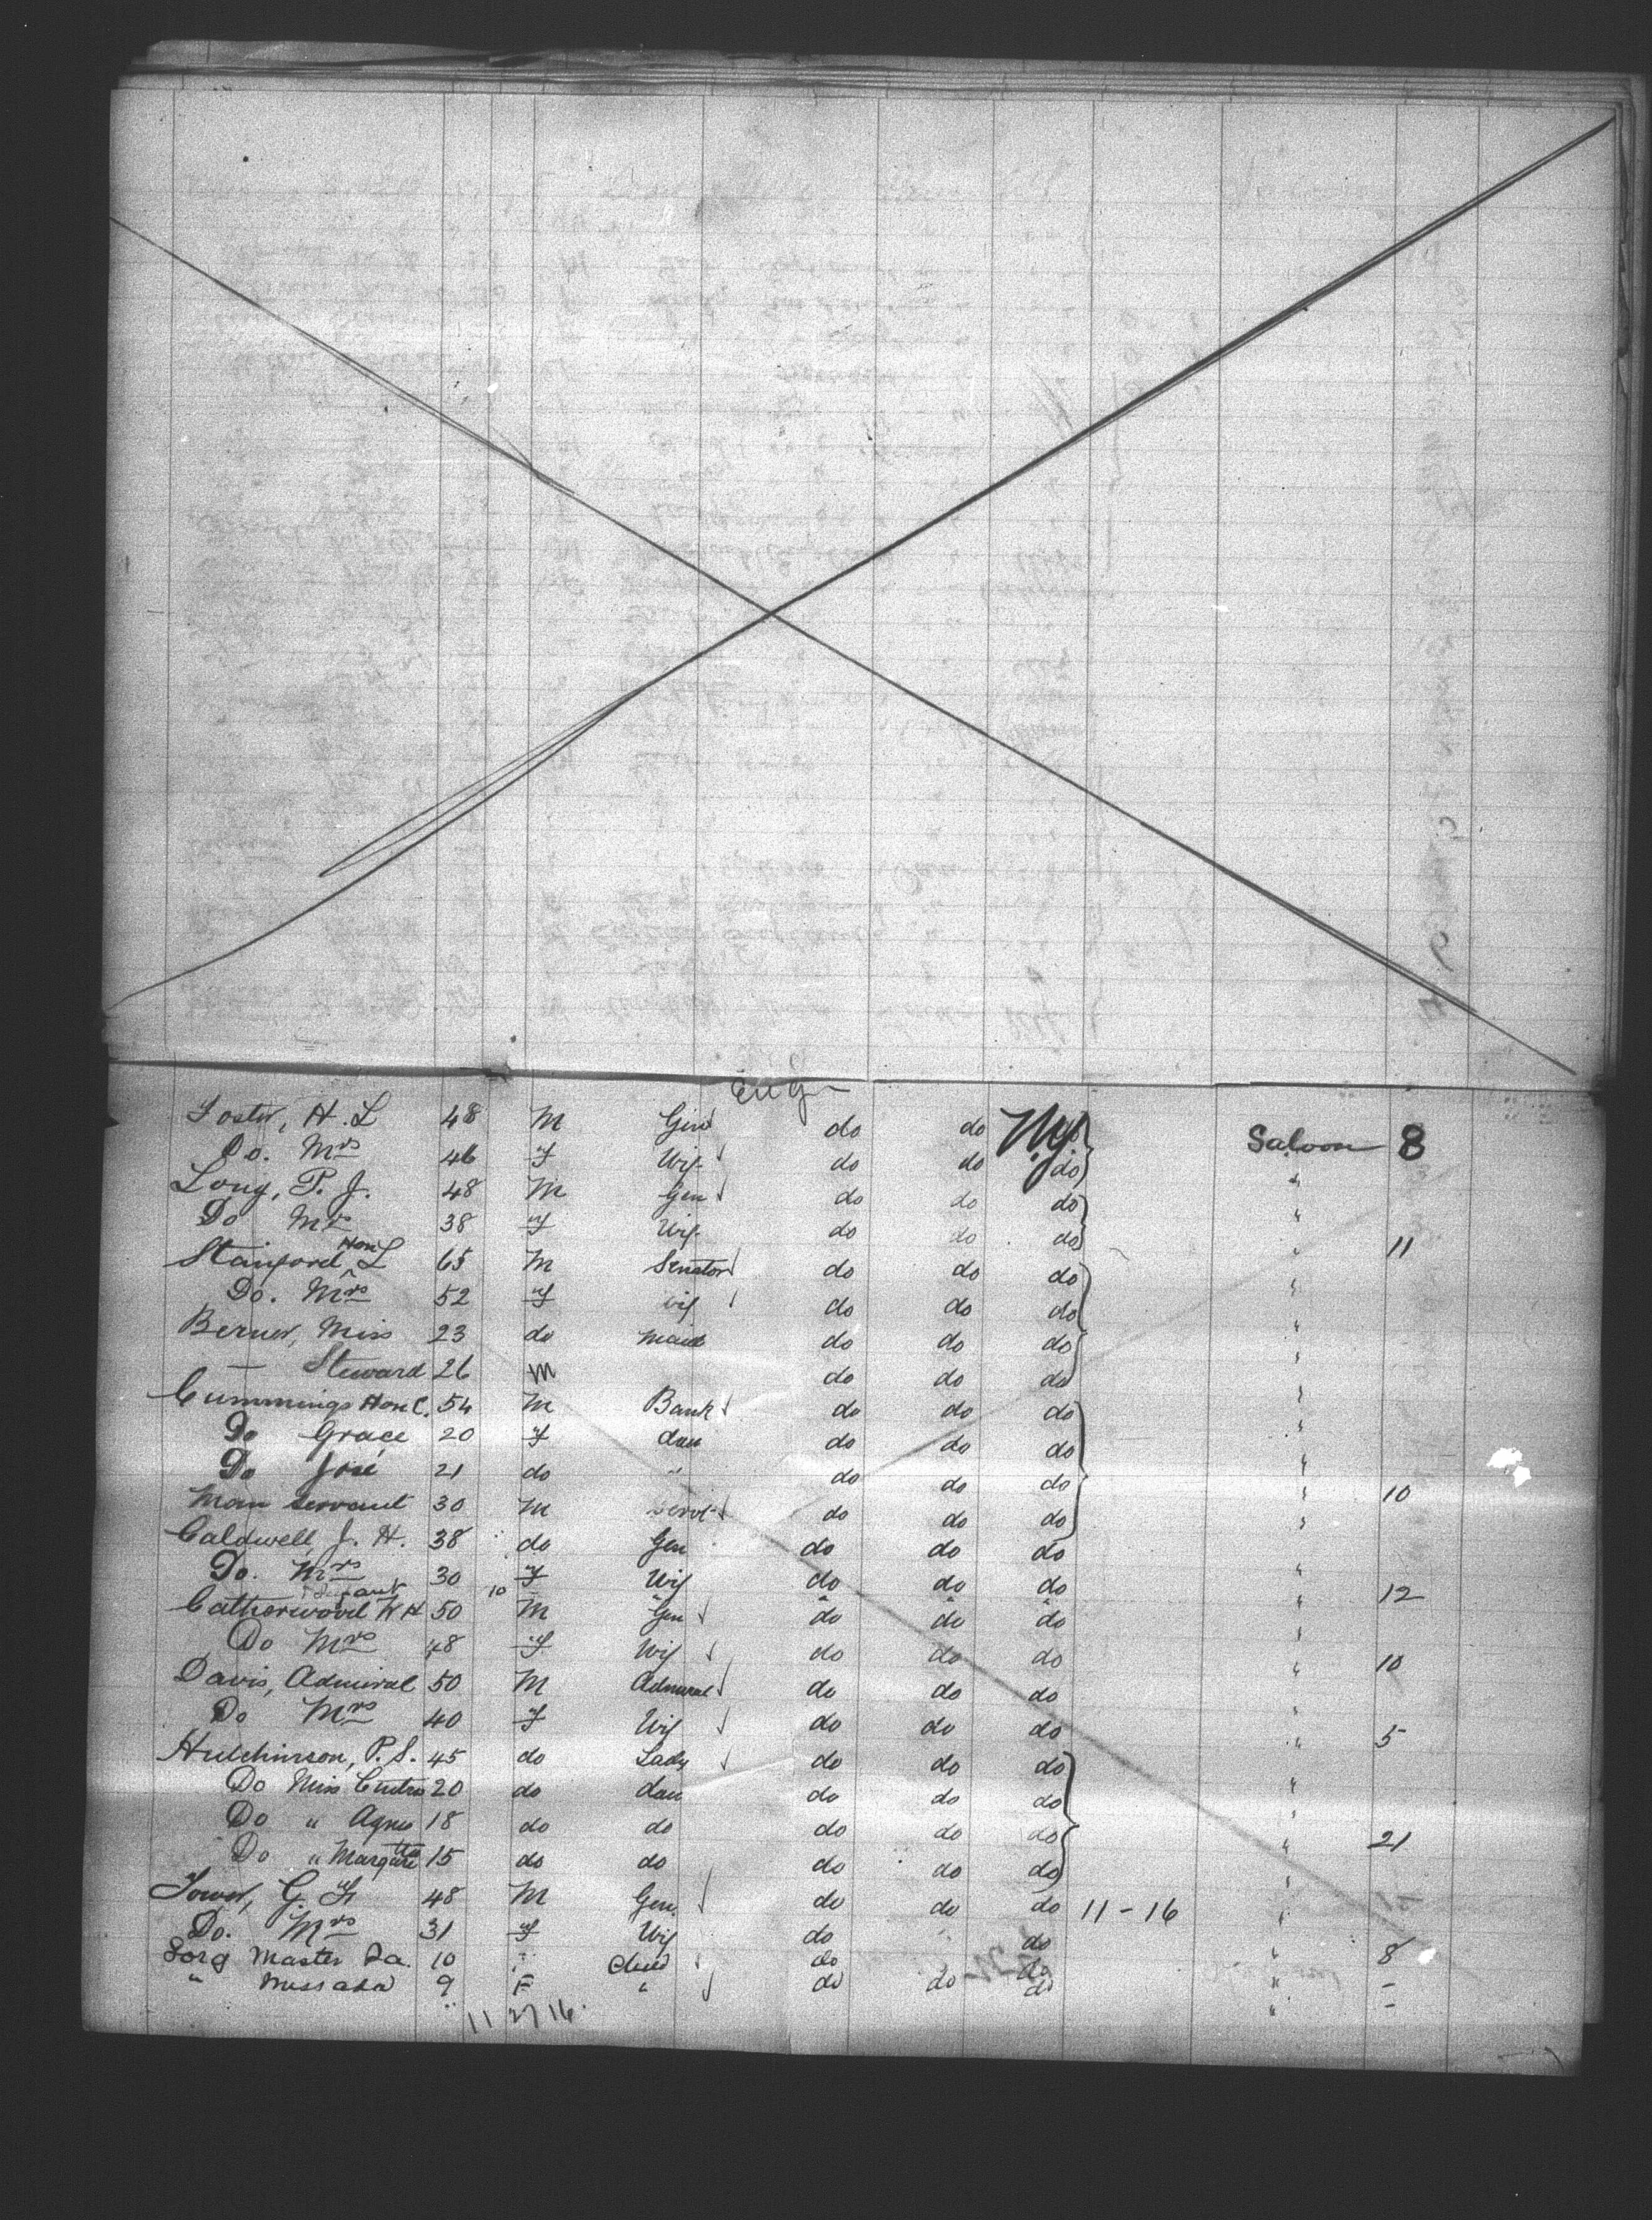 Eng
Foster, H. L 48 M Gen do do Ny do Saloon 8
Do. Mrs 46 f Wif do do do "
Long, P. J. 48 M Gen do do do "
Do Mrs 38 f Wif do do do " 11
Stanford Hon L 65 M Senator do do do "
Do. Mrs 52 f wif do do do "
Berner, Miss 23 do maid do do do "
— Steward 26 M do do do "
Cummings Hon C. 54 M Bank do do do "
Do Grace 20 f dau do do do "
Do José 21 do " do do do " 10
Man Servant 30 M Servt do do do "
Caldwell, J. H. 38 do Gen do do do
Do. Mrs 30 f Wif do do do " 12
Infant 10
Catherwood W H 50 M Gen do do do "
Do Mrs 48 f Wif do do do " 10
Davis, Admiral 50 M Admiral do do do
Do Mrs 40 f Wif do do do " 5
Hutchinson, P. S. 45 do Lady do do do "
Do Miss 20 do dau do do do "
Do " Agnes 18 do do do do do " 21
Do " 15 do do do do do "
Tower, G. F 48 M Gen. do do do 11-16 "
Do. Mrs 31 f Wif do do " 8
Sorg Master 10 " Child do do " -
" Miss Ada 9 F " do do do " -
11 27 16